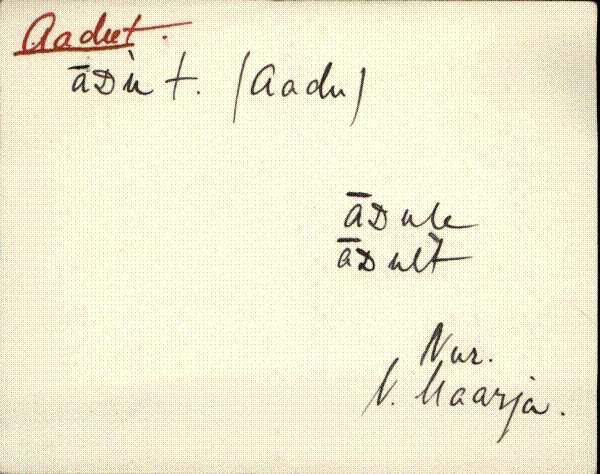 Aadu t.
āᴅù t. (Aadu)
āᴅule
āᴅult
Nur.
V. Maarja.